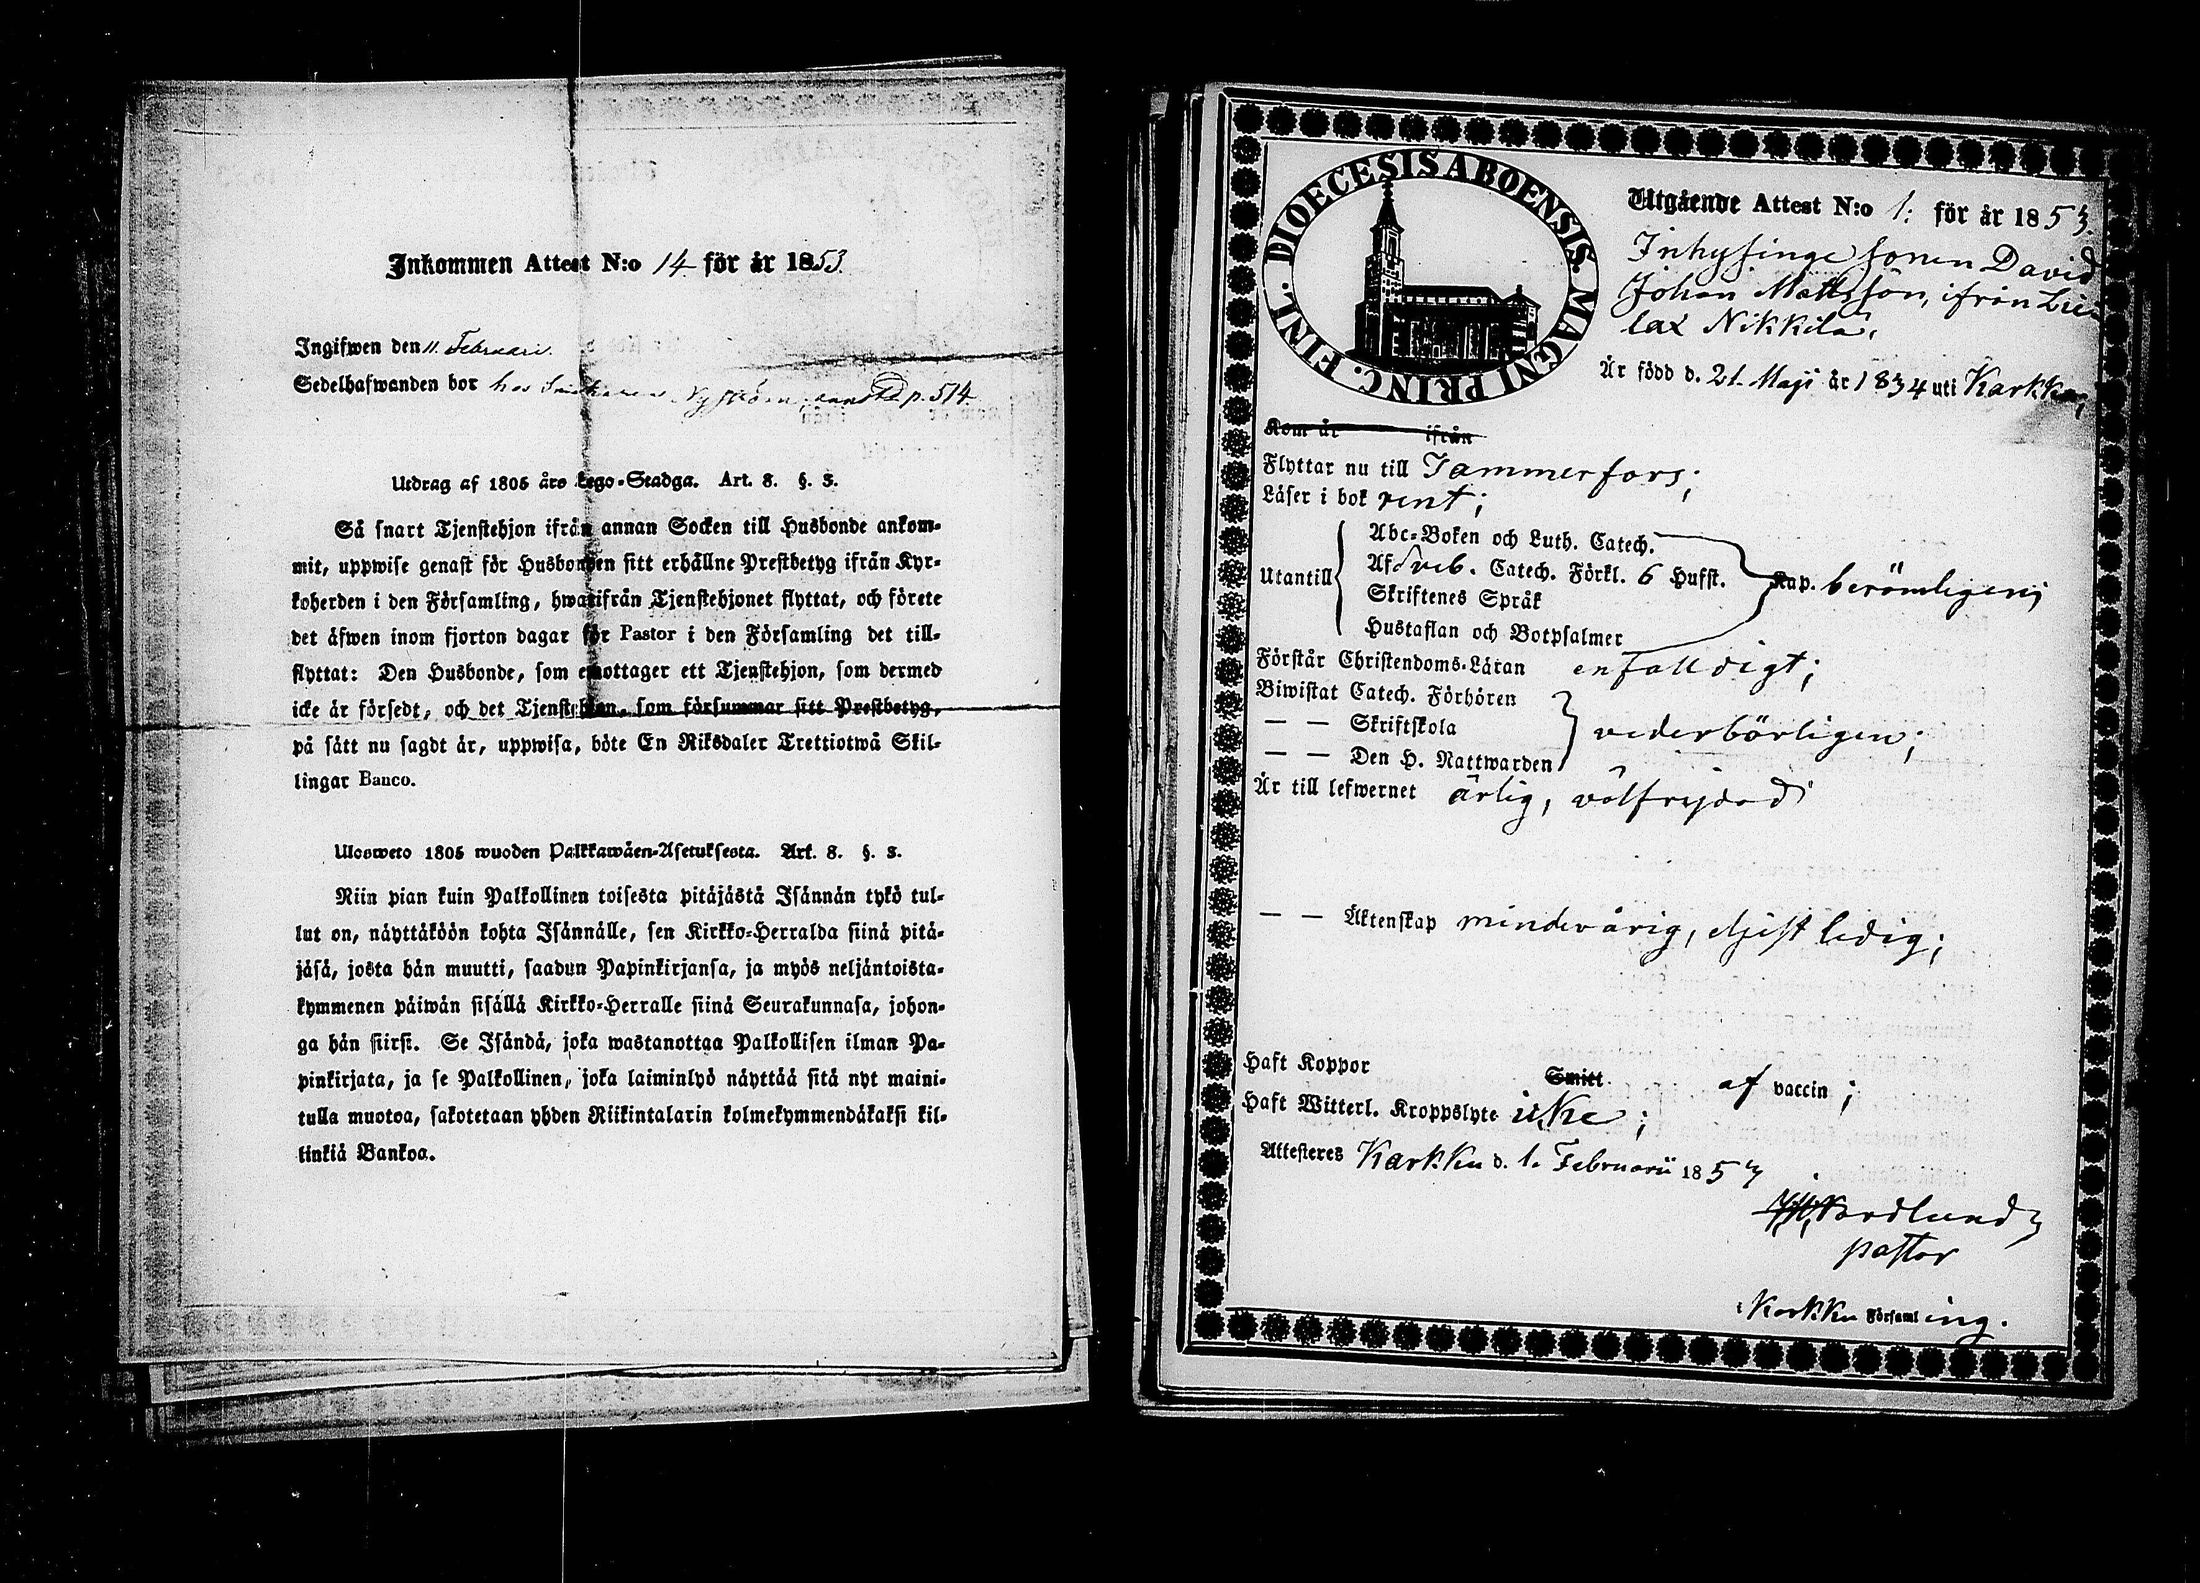 Inkommen Attest N:o 14 för år 1853.
Ingifwen den 11. Februari.
Sedelhafwanden bor hos Nyström, p. 514
Utdrag af 1805 års Lego-Stadga. Art. 8. §. 3.
Så snart Tjenstehjon ifrån annan Socken till Husbonde ankom-
mit, uppwise genast för Husbonden sitt erhållne Prestbetyg ifrån Kyr-
koherden i den Församling, hwarifrån Tjenstehjonet flyttat, och förete
det äfwen inom fjorton dagar för Pastor i den Församling det till-
flyttat: Den Husbonde, som emottager ett Tjenstehjon, som dermed
icke är försedt, och det Tjenstehjon, som försummar sitt Prestbetyg,
på sätt nu sagdt är, uppwisa, böte En Riksdaler Trettiotwå Skil-
lingar Banco.
Ulosweto 1805 wuoden Palkkawäen-Asetuksesta. Art. 8. §. 3.
Niin pian kuin Palkollinen toisesta pitäjästä Isännän tykö tul-
lut on, näyttäköön kohta Isännälle, sen Kirkko-Herralda siinä pitä-
jäsä, josta hän muutti, saadun Papinkirjansa, ja myös neljäntoista-
kymmenen päiwän sisällä Kirkko-Herralle siinä Seurakunnasa, johon-
ga hän siirsi. Se Isändä, joka wastanottaa Palkollisen ilman Pa-
pinkirjata, ja se Palkollinen, joka laiminlyö näyttää sitä nyt maini-
tulla muotoa, sakotetaan yhden Riikintalarin kolmekymmendäkaksi kil-
linkiä Bankoa.
DIOECESIS ABOENSIS. MAGNI PRINC. FINL.
Utgående Attest N:o 1: för år 1853.
Inhysinge sonen David
Johan Mattsson, ifrån Lie-
lax Nikkilä,
Är född d. 21. Maji år 1834 uti Karkku;
Kom år ifrån
Flyttar nu till Tammerfors;
Läser i bok rent;
Abc-Boken och Luth. Catech.
Utantill Af Sveb. Catech. Förkl. 6 Hufst. Kap. berömligen;
Skriftenes Språk
Hustaflan och Botpsalmer
Förstår Christendoms-Läran enfaldigt;
Biwistat Catech. Förhören
— — Skriftskola vederbörligen;
— — Den H. Nattwarden
Är till lefwernet ärlig, välfrejdad
— — Äktenskap minderårig, ledig;
Haft Koppor Smitt. af vaccin;
Haft Witterl. Kroppslyte icke;
Attesteres Karkku d. 1. Februarii 1853
Nordlund
pastor
i Karkku Församling.